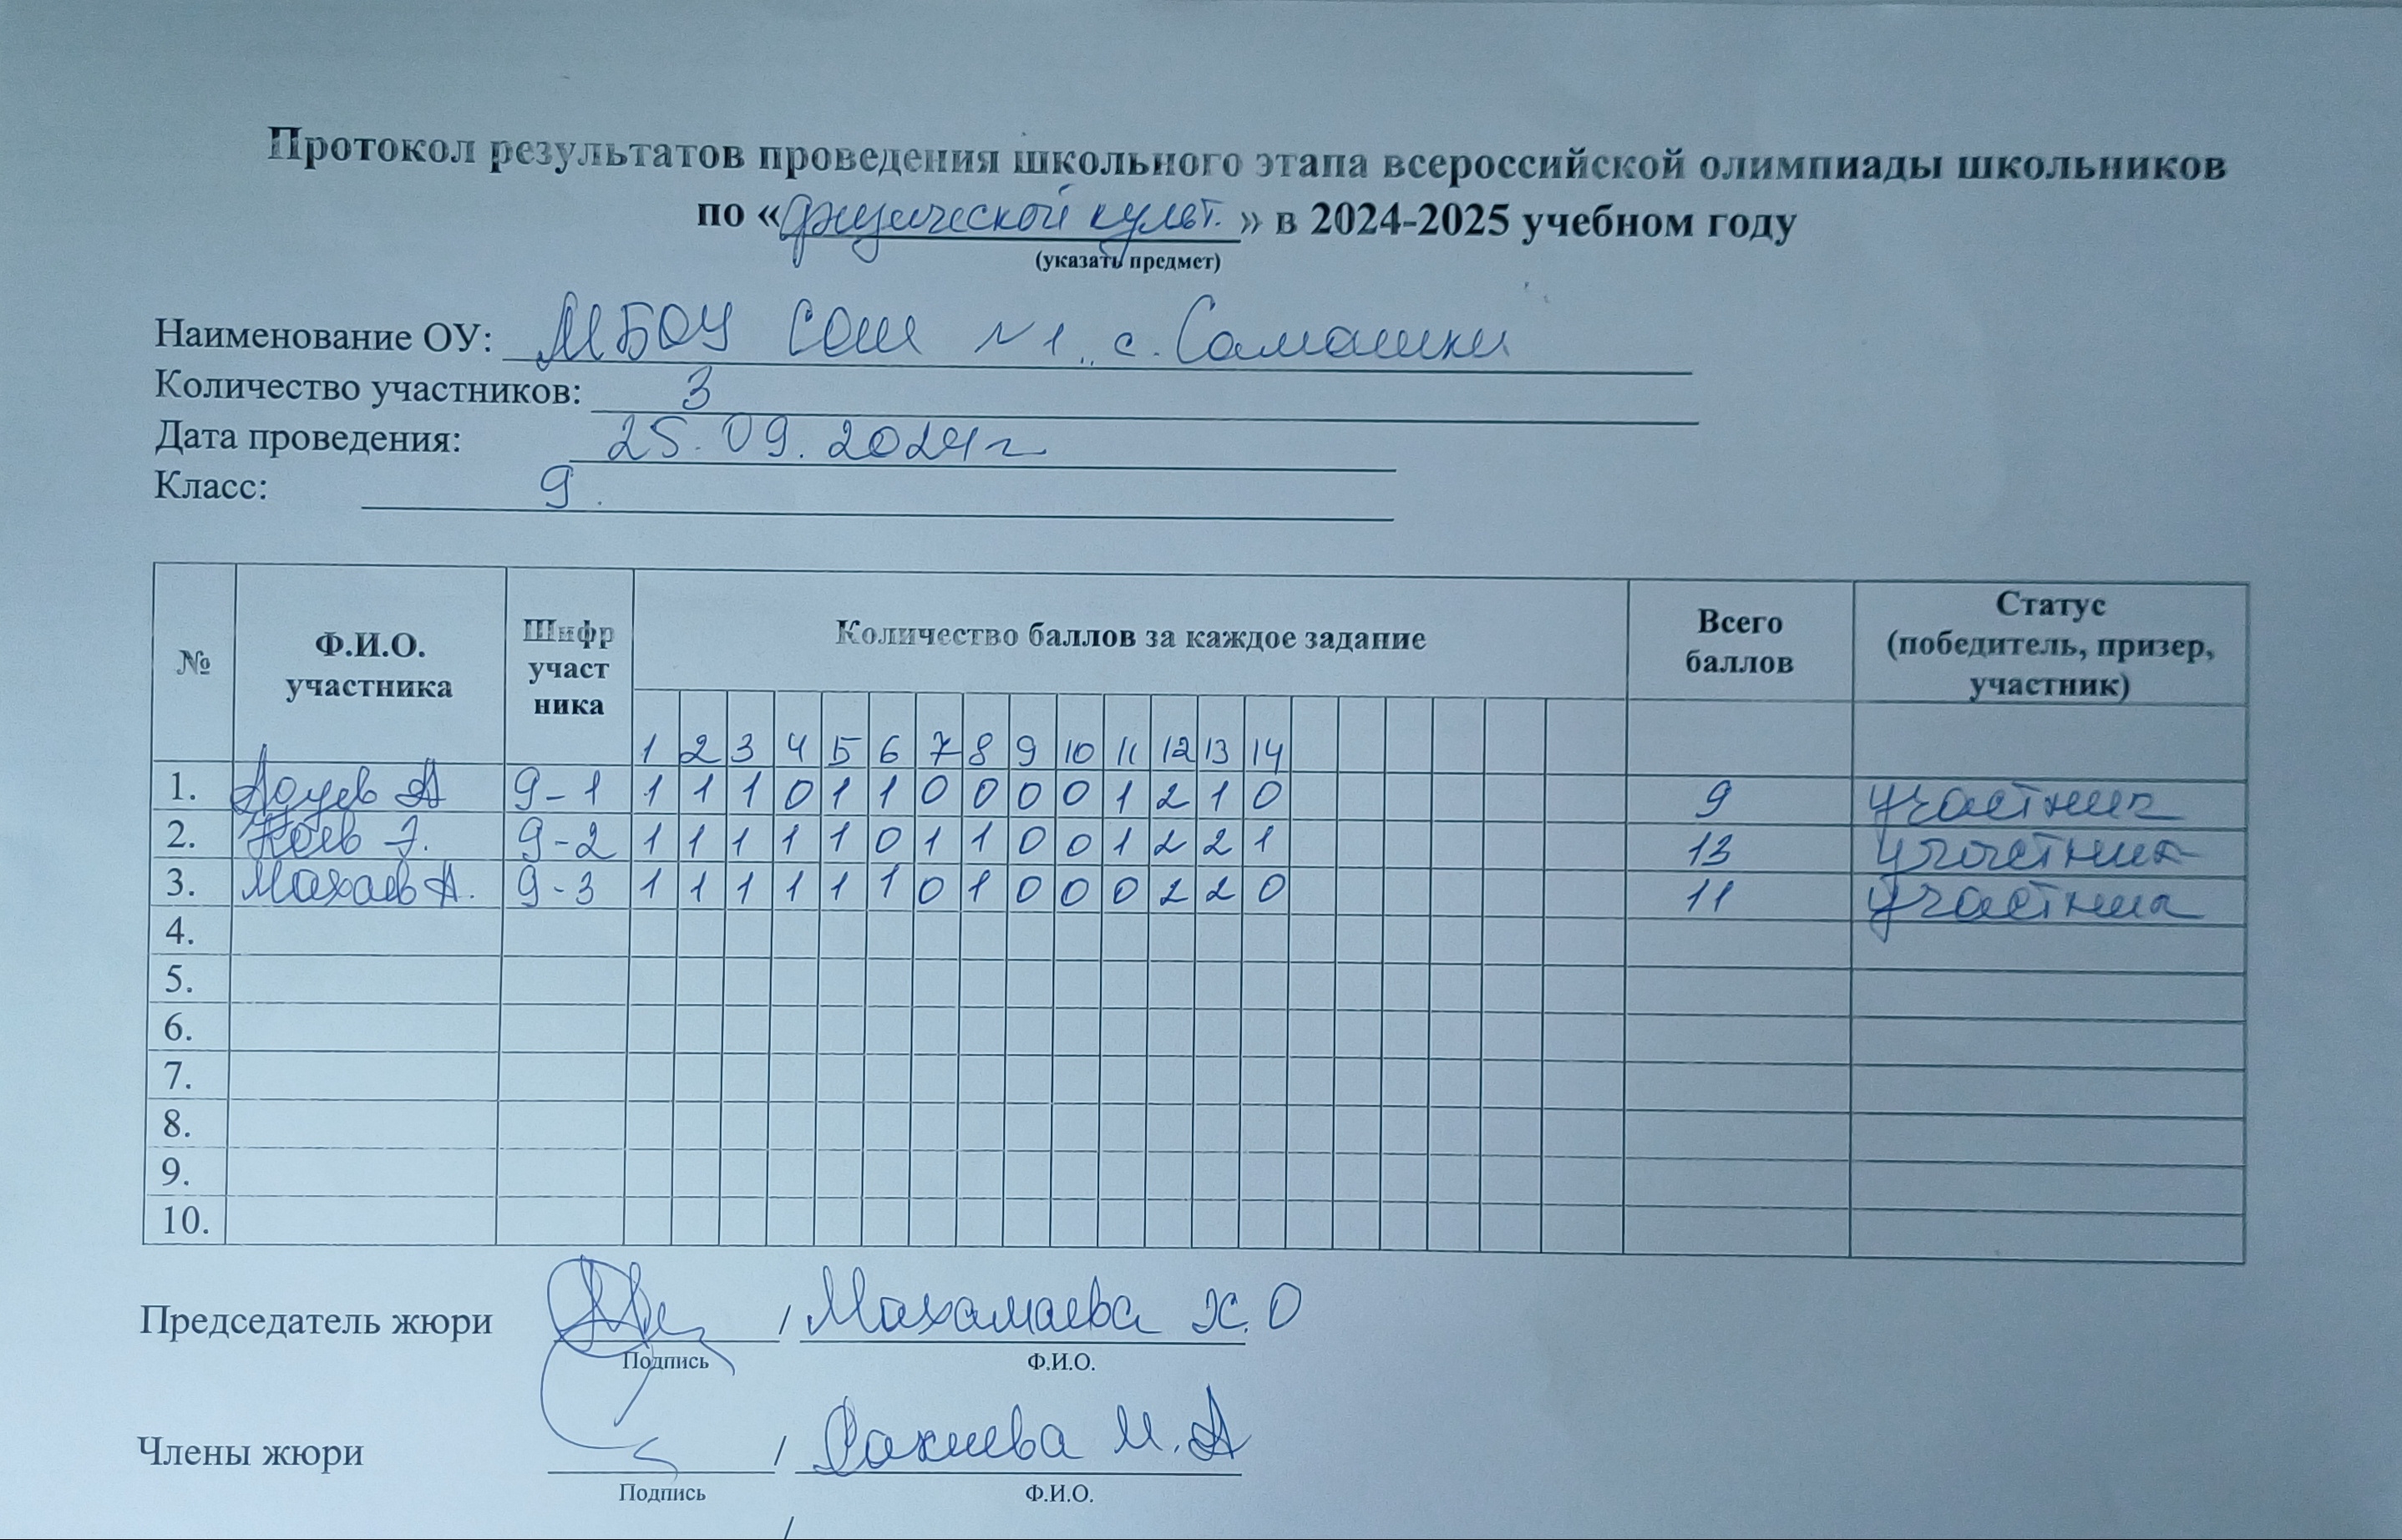 Протокол результатов проведения школьного этапа всероссийской олимпиады школьников
по «физической культ.» в 2024-2025 учебном году
(указать предмет)
Наименование ОУ: МБОУ СОШ №1 с. Самашки
Количество участников: 3
Дата проведения: 25.09.2024г
Класс: 9.
№ Ф.И.О. участника Шифр участ ника Количество баллов за каждое задание Всего баллов Статус (победитель, призер, участник)
1 2 3 4 5 6 7 8 9 10 11 12 13 14
1. А 9-1 1 1 1 0 1 1 0 0 0 0 1 2 1 0 9 участник
2. 9-2 1 1 1 1 1 0 1 1 0 0 1 2 2 1 13 участник
3. Махаев А. 9-3 1 1 1 1 1 1 0 1 0 0 0 2 2 0 11 участник
4.
5.
6.
7.
8.
9.
10.
Председатель жюри / Махамаева Х.О
Подпись Ф.И.О.
Члены жюри / М.А
Подпись Ф.И.О.
/